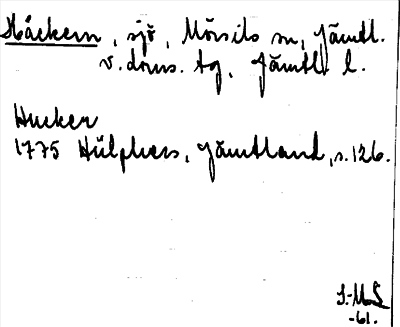 Häckern, sjö, Mörsils sn, Jämtl.
v. doms. tg, Jämtl. l.
Hucker
1775 Hülphers, Jämtland, s. 126.
-61.